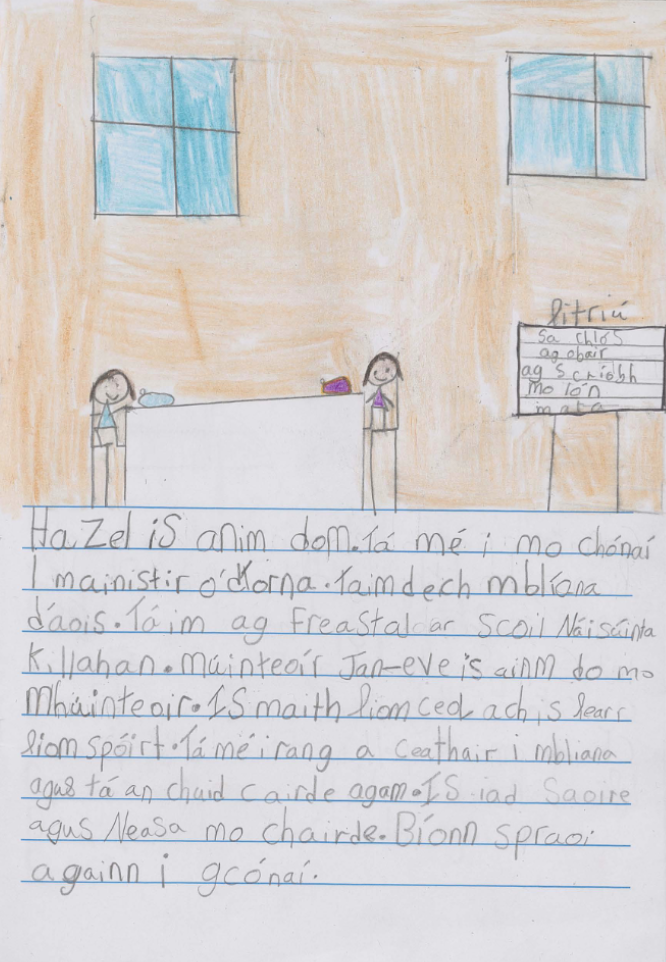 litriú
sa chlós
ag obair
ag scríobh
mo lón
mata
Hazel is anim dom. Tá mé i mo chónaí
I mainistir o'dtorna. Taim dech mblíana
d'aois. Tá im ag freastal ar Scoil Náisúinta
Killahan. Múinteoír Jan-eve is ainm do mo
Mhúinteoir. IS maith liom ceol ach is fearr
liom spóirt. Tá mé i rang a ceathair i mbliana
agus tá an chuid cairde agam. IS iad Saoire
agus Neasa mo chairde. Bíonn spraoi
againn i gcónaí.